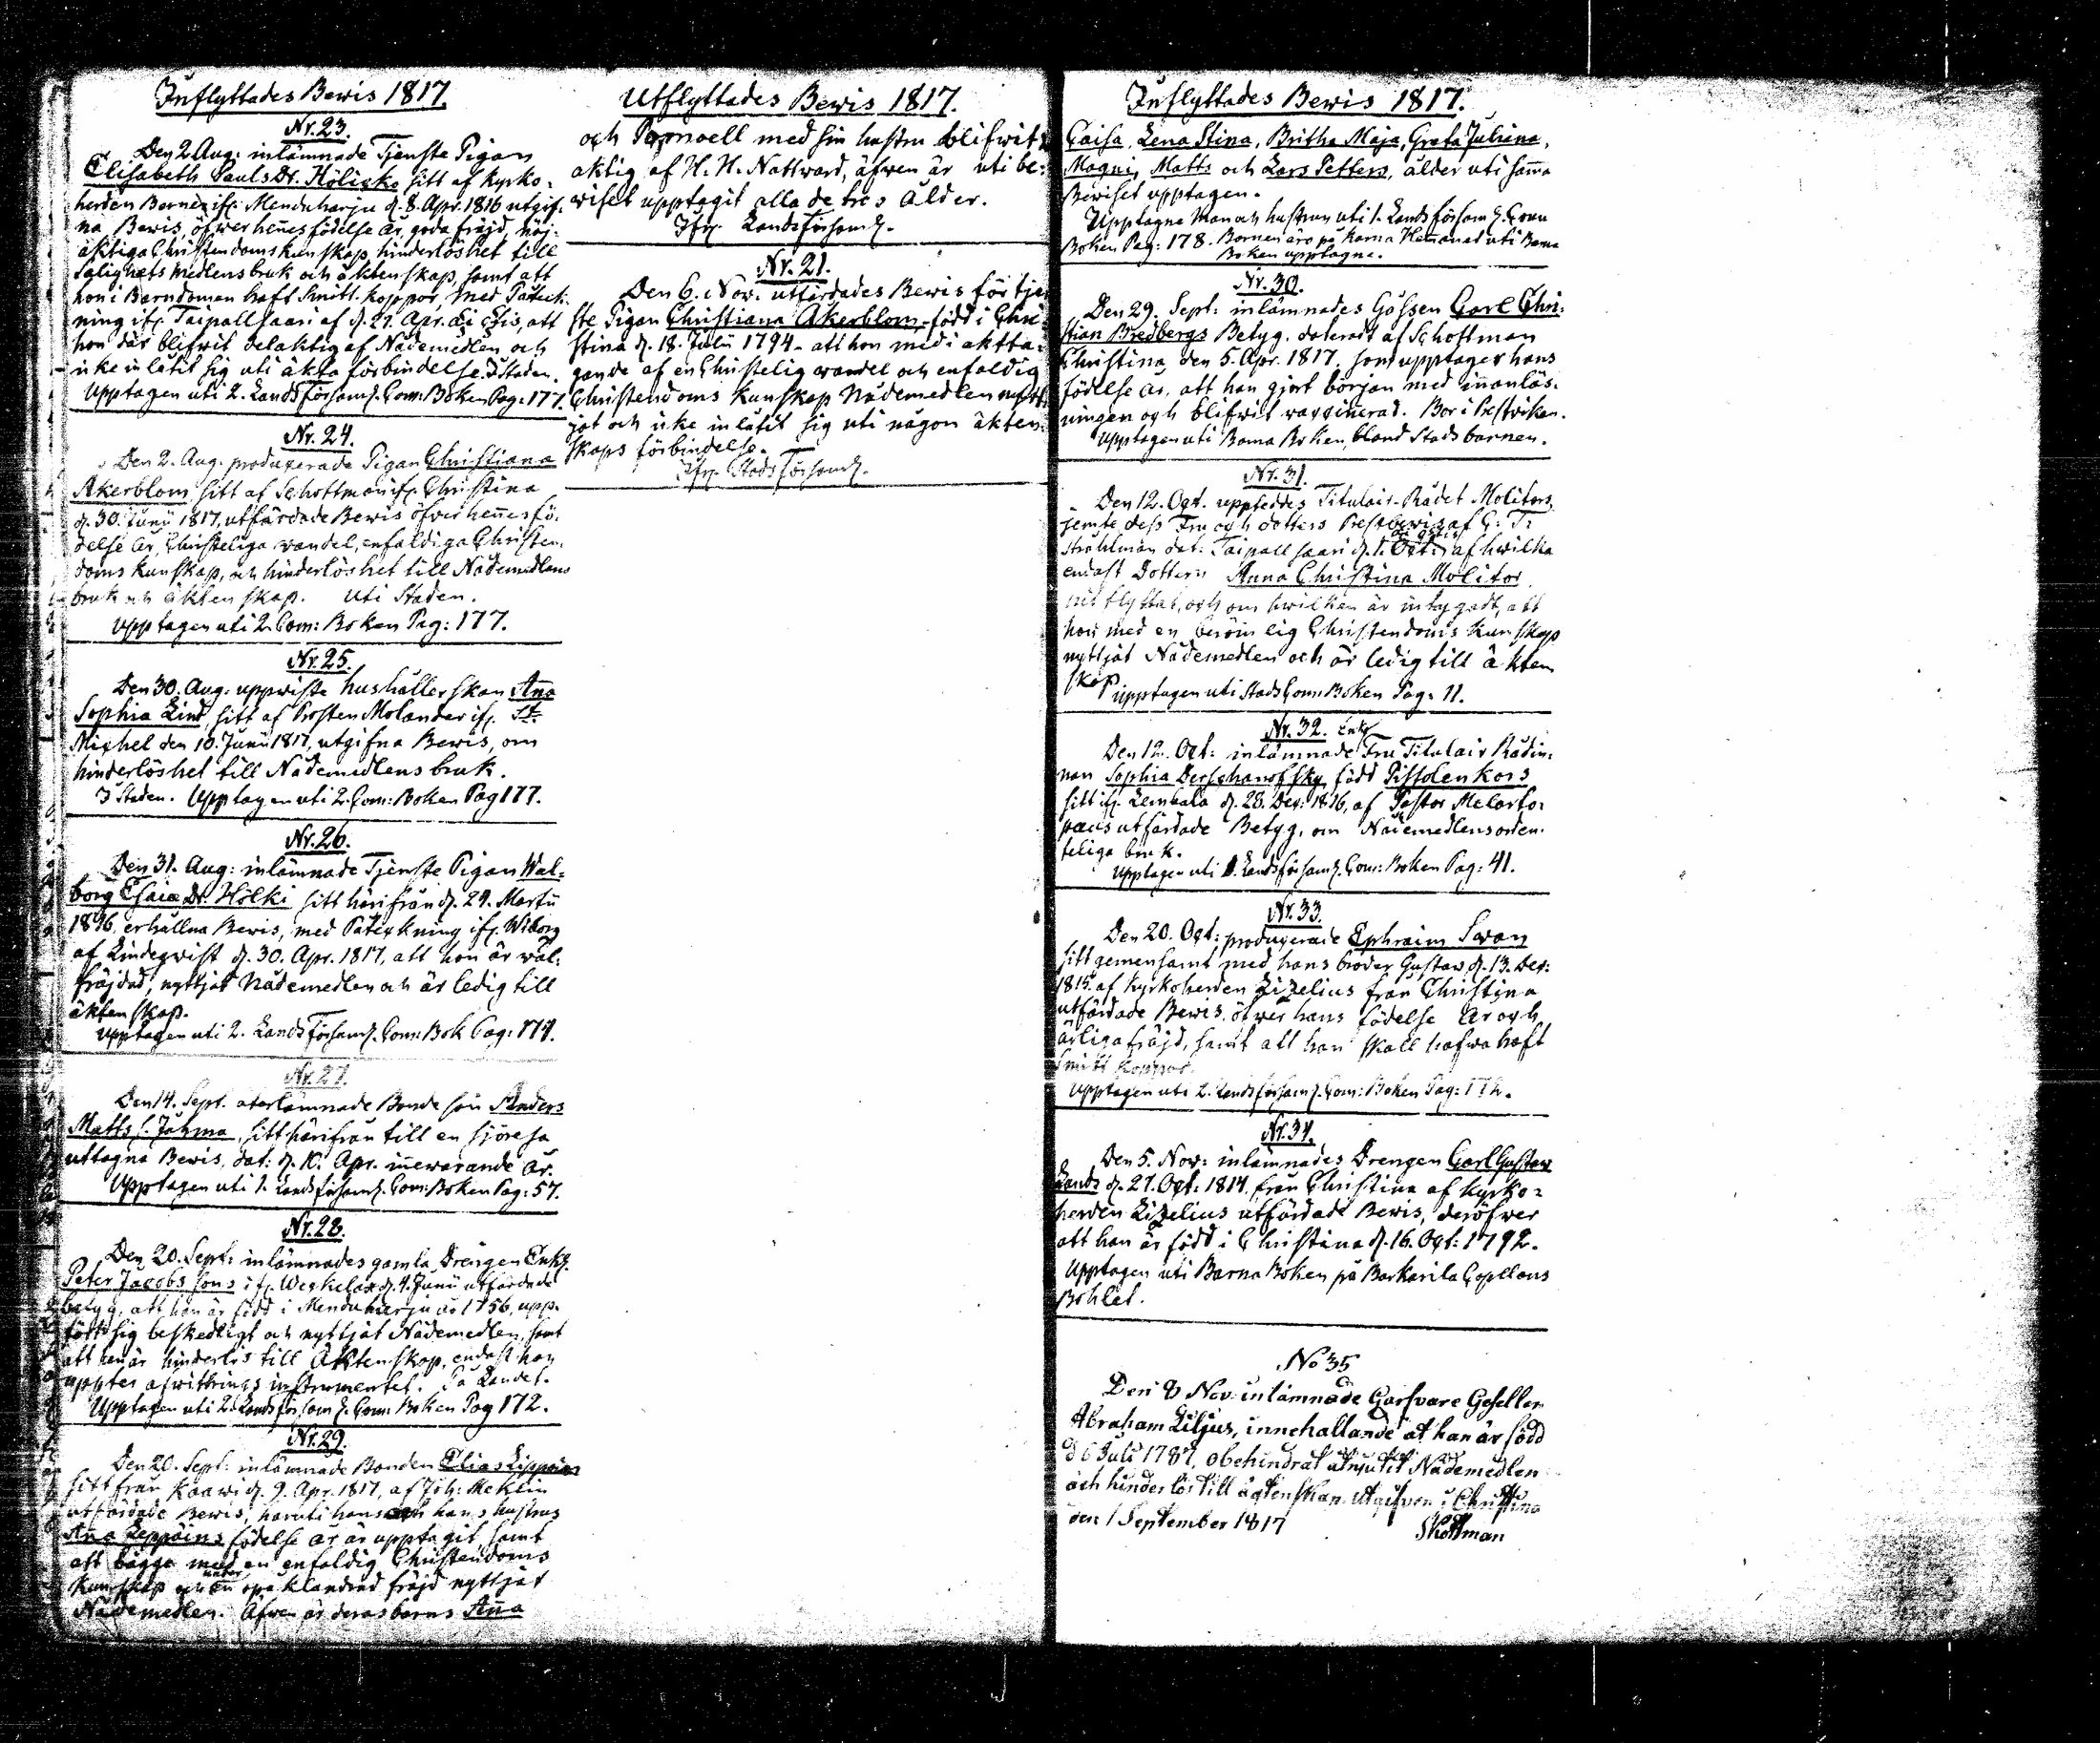 Inflyttades Bewis 1817.
Nr. 23.
Den 2 Aug: inlämnade Tjenste Pigan
Elisabeth Pauls Dr. Hölicko sitt af Kyrko-
herden Berner ifr. Menduharju d. 8. Apr. 1816 utgif-
na Bewis, öfwer hennes födelse år, goda fräjd, nöj-
aktiga Christendoms kunskap, hinderlöshet till
Salighets medlens bruk och äktenskap, samt att
hon i Barndomen haft Smitt-koppor, med Påteck-
ning ifr. Taipallsaari af d. 27. Apr. di Ætis, att
hon där blifwit delaktig af Nådemedlen och
icke inlåtit sig uti äkta förbindelse. I Staden.
Upptagen uti 2. Lands Församl. Com: Boken Pag: 177.
Nr. 24.
Den 2. Aug. producerade Pigan Christiana
Akerblom sitt af Schottman ifr. Christina
d. 30. Junii 1817, utfärdade Bewis öfver hennes fö-
delse år, Christeliga wandel, enfaldiga Christen-
doms kunskap, och hinderlöshet till Nådemedlens
bruk och äktenskap. Uti Staden.
Upptagen uti 2. Com: Boken Pag: 177.
Nr. 25.
Den 30. Aug. uppwiste hushållerskan Anna
Sophia Lind, sitt af Prosten Molander ifr. St.
Michel den 10. Junii 1817, utgifna Bewis, om
hinderlöshet till Nådemedlens bruk.
I Staden. Upptagen uti 2. Com: Boken Pag 177.
Nr. 26.
Den 31. Aug: inlämnade Tjenste Pigan Wal-
borg Esaiæ Dr. Hölki sitt härifrån d. 24. Martii
1816, erhållna Bewis, med Påteckning ifr. Wiborg
af Lindeqwist d. 30. Apr. 1817, att hon är wäl-
fräjdad, nyttjat Nådemedlen och är ledig till
äktenskap.
Upptagen uti 2. Lands Församl. Com: Bok Pag: 174.
Nr. 27.
Den 14. Sept. återlämnade Bonde son Anders
Matts s. Juhma, sitt härifrån till en sjöresa
uttagna Bewis, dat: d. 10. Apr. innewarande år.
Upptagen uti 1. Lands församl. Com: Boken Pag: 57.
Nr. 28.
Den 20. Sept: inlämnades gamla Drengen Enkl.
Peter Jacobs sons ifr. Weckelax d. 4. Junii utfärdade
betyg, att han är född i Menduharju år 1756, upp-
fört sig beskedligt och nyttjat Nådemedlen, samt
att han är hinderlös till Äktenskap, endast han
uppter afwittrings instrumentet. På Landet.
Upptagen uti 2. Lands församl. Com: Boken Pag 172.
Nr. 29.
Den 20. Sept: inlämnade Bonden Elias Lippoins
sitt från Kaawi d. 9. Apr. 1817, af Joh: Meklin
utfärdade Bewis, haruti hans och hans hustrus
Anna Leppoins födelse år är upptagit, samt
att bägge med en enfaldig Christendoms
kunskap och under en oproklandrad fräjd nyttjat
Nådemedlen. Äfwen är deras barns Anna
Utflyttades Bewis 1817.
och Pornoell med sin hustru blifwit
aktig af H. H. Nattward, äfwen är uti be-
wiset upptagit alla deras ålder.
Ifr. Lands Församl.
Nr. 21.
Den 6. Nov. utfärdades Bewis för tjen-
ste Pigan Christiana Åkerblom, född i Chri-
stina d. 18. Julii 1794 - att hon med i aktta-
gande af en Christelig wandel och enfaldig
Christendoms kunskap Nådemedlen nytt-
jat och icke inlåtit sig uti någon äkten-
skaps förbindelse.
Ifr. Stads Församl.
Inflyttades Bewis 1817.
Caisa, Lena Stina, Britha Maja, Greta Juliana,
Magni, Matts och Lars Petters, ålder uti samma
Bewiset upptagen.
Upptagne Man och hustrun uti 1. Lands församl. Com
Boken Pag: 178. Barnen äro på Karna Hemanet uti Barna
Boken upptagne.
Nr. 30.
Den 29. Sept: inlämnades Gossen Carl Chri-
stian Bredbergs Betyg, daterat af Schottman
Christina den 5. Apr. 1817, som upptager hans
födelse år, att han gjort början med innanläs-
ningen och blifwit vaccinerad. Bor i Prestviken.
Upptagen uti Barna Boken, bland Stads barnen.
Nr. 31.
Den 12. Oct. uppteddes Titulair-Rådet Molitors
jemte dess Fru och dotters Prestbewis af G: Fr
Stråhlman dat: Taipallsaari d. 1. Oct: af hwilka
endast Dottern Anna Christina Molitor
hit flyttat, och om hwilken är intygadt, att
hon med en berömlig Christendoms kunskap
nyttjat Nådemedlen och är ledig till äkten
skap. Upptagen uti Stads Com: Boken Pag: 11.
Nr. 32.
Enkl
Den 12. Oct: inlämnade Fru Titulair Rådin-
nan Sophia Derschanofsky född Pistolenkors
sitt ifr. Lembala d. 28. Dec: 1816, af Pastor Melarto-
pæus utfärdade Betyg, om Nådemedlens orden-
teliga bruk.
Upptagen uti 1. Lands församl. Com: Boken Pag: 41.
Nr. 33.
Den 20. Oct: producerade Ephraim Swan
sitt gemensamt med hans broder Gustav d. 13. Dec:
1815. af Kyrkoherden Lizelius från Christina
utfärdade Bewis, öfwer hans födelse år och
ärliga fräjd, samt att han skall hafwa haft
Smitt koppor.
Upptagen uti 2. Lands församl. Com: Boken Pag: 172.
Nr. 34.
Den 5. Nov: inlämnades Drengen Carl Gustaw
Lands d. 27. Oct: 1814 från Christina af Kyrko-
herden Lizelius utfärdade Bewis, deröfwer
att han är född i Christina d. 16. Oct: 1792.
Upptagen uti Barna Boken på Barkarila Copellans
Bohlet.
No 35
Den 8 Nov: inlämnade Garfvare Gesellen
Abraham Liljus, innehallande at han är född
d 6 Juli 1787, obehindrat åtnjutit Nådemedlen
och hinderlös till ägtenskap. Utgifven i Christina
den 1 September 1817
Skottman